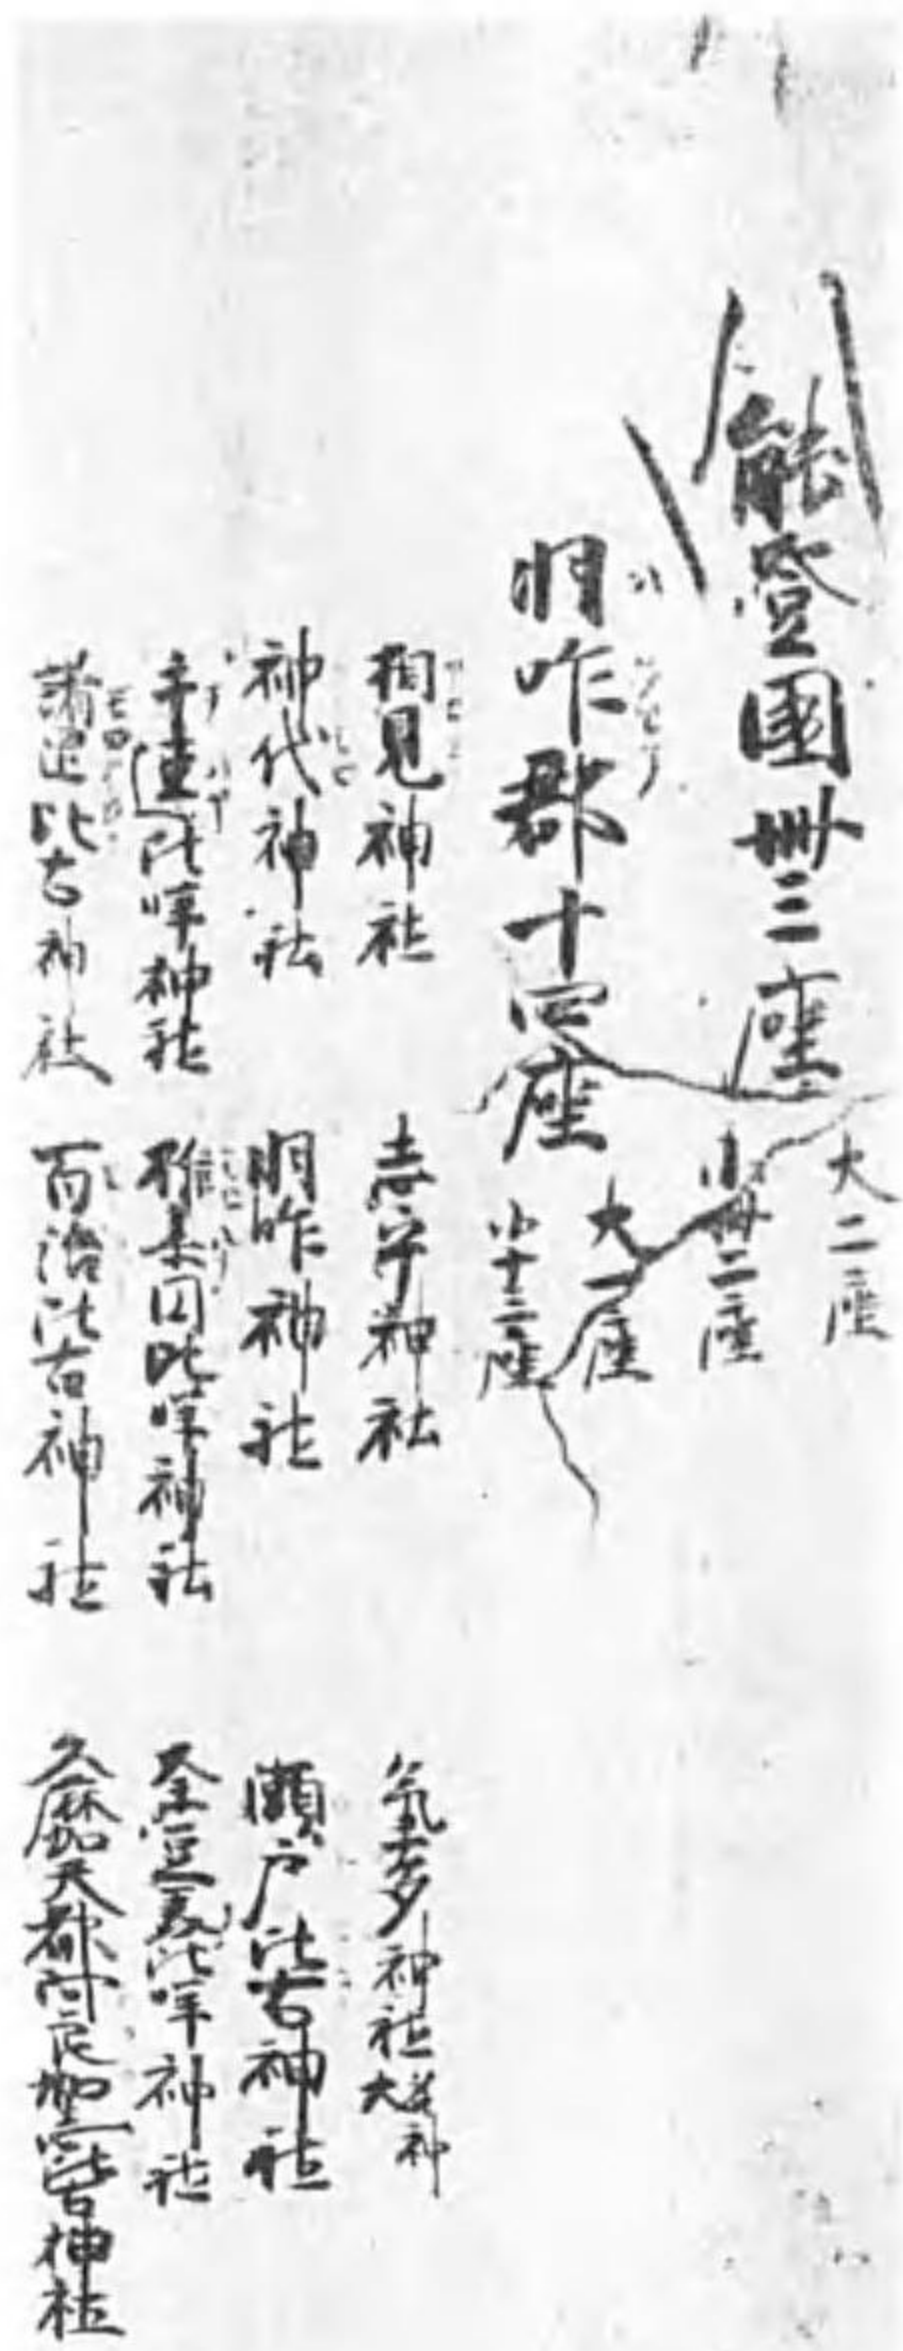 能登國卌三座
大二座
小卌二座
羽咋郡十四座
大一座
小十三座
相見神社
志乎神社
氣多神社 名神大
神代神社
羽咋神社
瀬戸比古神社
手速比咩神社
椎葉囚比咩神社
奈豆美比咩神社
諸岡比古神社
百沼比古神社
久麻加夫都阿良加志比古神社